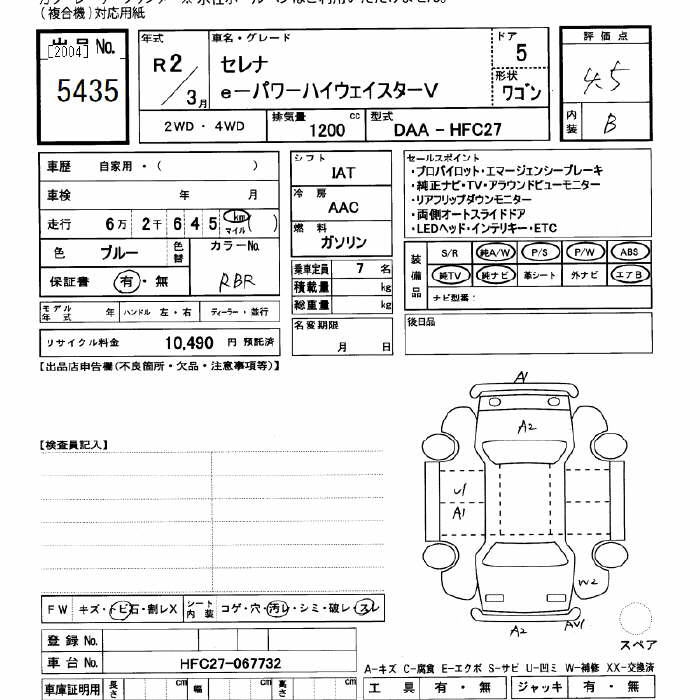 (複合機)対応用紙
出品No.
[2004]
5435
年式
R2/3月
車名・グレード
セレナ
e-パワーハイウェイスターV
ドア
5
形状
ワゴン
評価点
4.5
内装
B
2WD・4WD
排気量
1200 cc
型式
DAA-HFC27
車歴 自家用・( )
車検 年 月
走行 6万 2千 6 4 5 km マイル ( )
色 ブルー 色替 カラーNo.
保証書 有・無 RBR
モデル年式 年 ハンドル 左・右 ディーラー・並行
リサイクル料金 10,490 円 預託済
シフト
IAT
冷房
AAC
燃料
ガソリン
乗車定員 7 名
積載量 kg
総重量 kg
名変期限
月 日
セールスポイント
・プロパイロット・エマージェンシーブレーキ
・純正ナビ・TV・アラウンドビューモニター
・リアフリップダウンモニター
・両側オートスライドドア
・LEDヘッド・インテリキー・ETC
装備品
S/R 純A/W P/S P/W ABS
純TV 純ナビ 革シート 外ナビ エアB
ナビ型番:
後日品
【出品店申告欄(不良箇所・欠品・注意事項等)】
【検査員記入】
A1
A2
U1
A1
W2
A2
AU1
スペア
FW キズ・トビ石・割レX シート内装 コゲ・穴・汚レ・シミ・破レ・スレ
登録No.
車台No. HFC27-067732
車庫証明用 長さ cm 幅 cm 高さ cm
A-キズ C-腐食 E-エクボ S-サビ U-凹ミ W-補修 XX-交換済
工具 有・無 ジャッキ 有・無